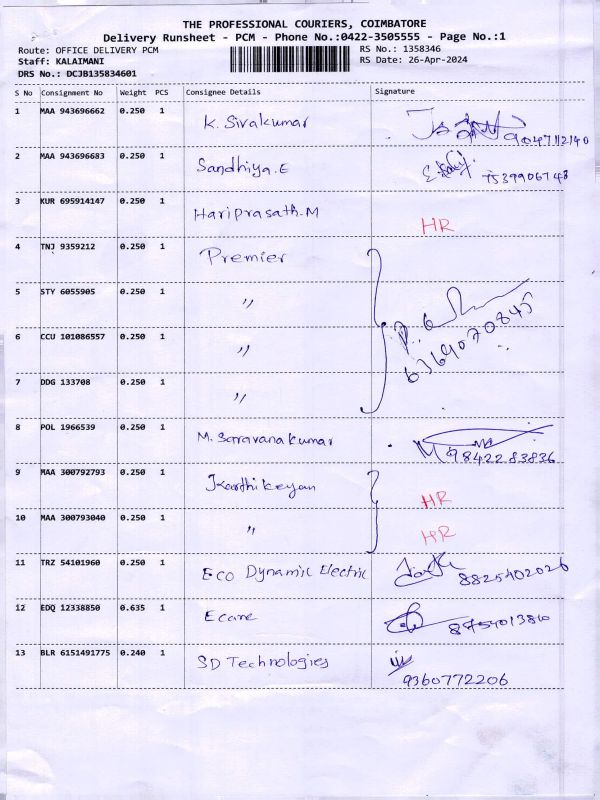 THE PROFESSIONAL COURIERS, COIMBATORE
Delivery Runsheet - PCM - Phone No.:0422-3505555 - Page No.:1
Route: OFFICE DELIVERY PCM RS No.: 1358346
Staff: KALAIMANI RS Date: 26-Apr-2024
DRS No.: DCJB135834601
S No Consignment No Weight PCS Consignee Details Signature
1 MAA 943696662 0.250 1 K. Sivakumar 9047112140
2 MAA 943696683 0.250 1 Sandhiya.E 7539906743
3 KUR 695914147 0.250 1 Hariprasath.M HR
4 TNJ 9359212 0.250 1 Premier
5 STY 6055905 0.250 1 "
6 CCU 101086557 0.250 1 " 6369070845
7 DDG 133708 0.250 1 "
8 POL 1966539 0.250 1 M. Saravanakumar 9842283836
9 MAA 300792793 0.250 1 Karthikeyan HR
10 MAA 300793040 0.250 1 " HR
11 TRZ 54101960 0.250 1 Eco Dynamic Electric 8825402026
12 EDQ 12338850 0.635 1 Ecare
13 BLR 6151491775 0.240 1 SD Technologies 9360772206